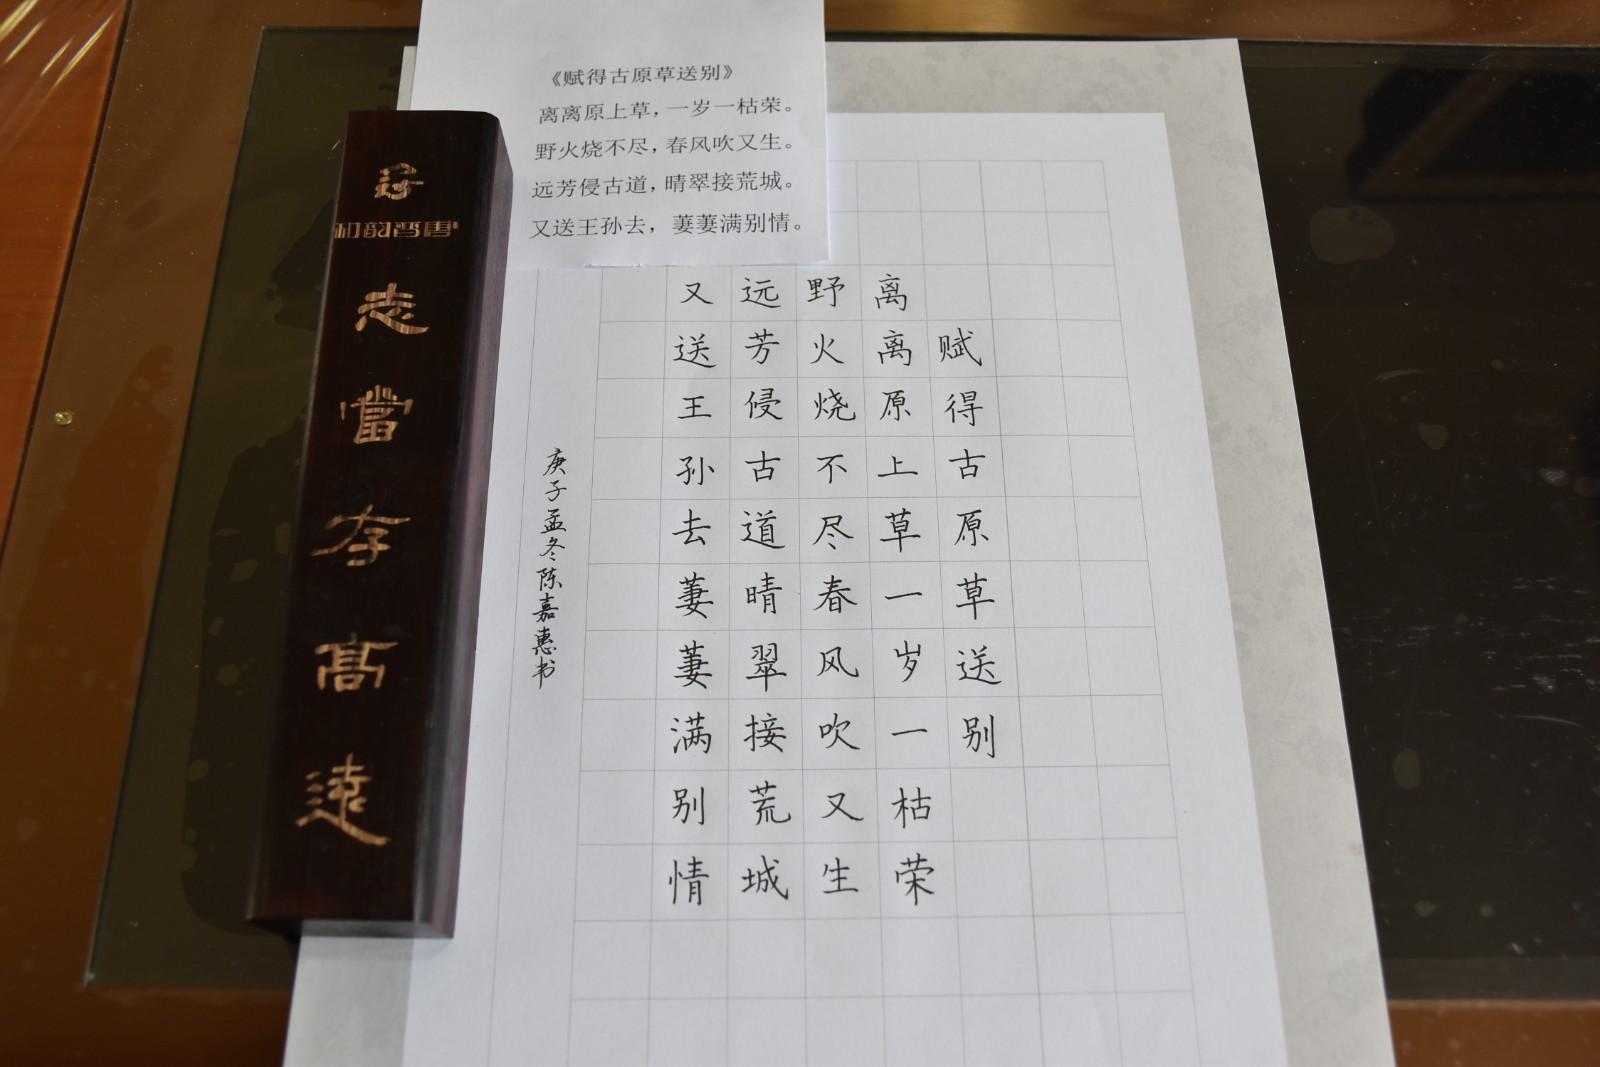 《赋得古原草送别》
离离原上草，一岁一枯荣。
野火烧不尽，春风吹又生。
远芳侵古道，晴翠接荒城。
又送王孙去，萋萋满别情。
赋得古原草送别
离离原上草一岁一枯荣
野火烧不尽春风吹又生
远芳侵古道晴翠接荒城
又送王孙去萋萋满别情
庚子孟冬陈嘉惠书
志當存高遠